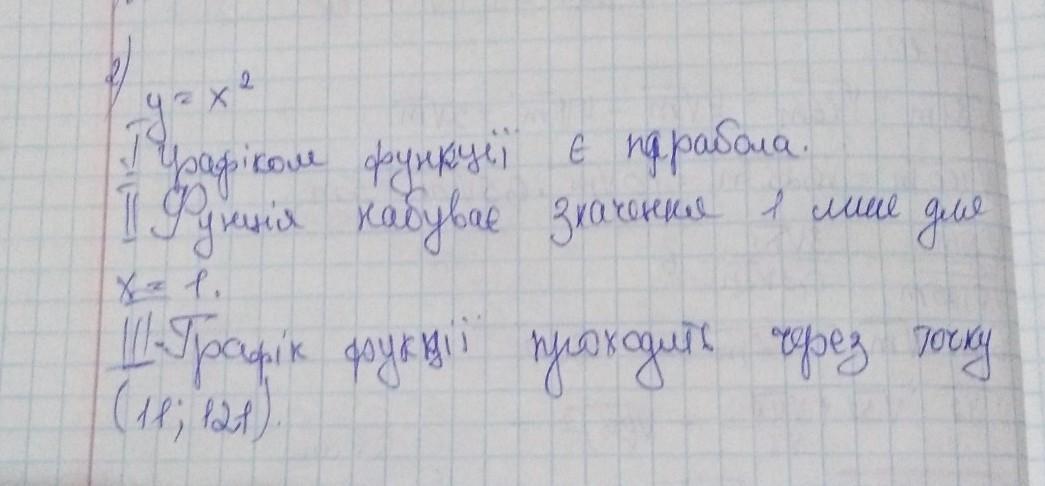 2)
y = x²
I Графіком функції є парабола.
II Функція набуває значення 1 лише для
x = 1.
III Графік функції проходить через точку
(11; 121).